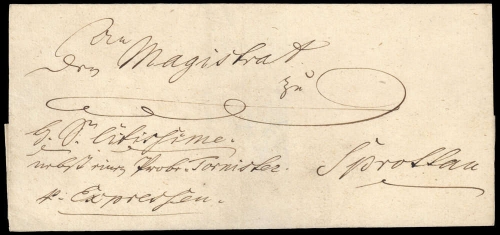 An
Den Magistrat
zu
H. S. Citissime.
nebst einem Probe-Tornister.
Sprottau
p. Expressen.